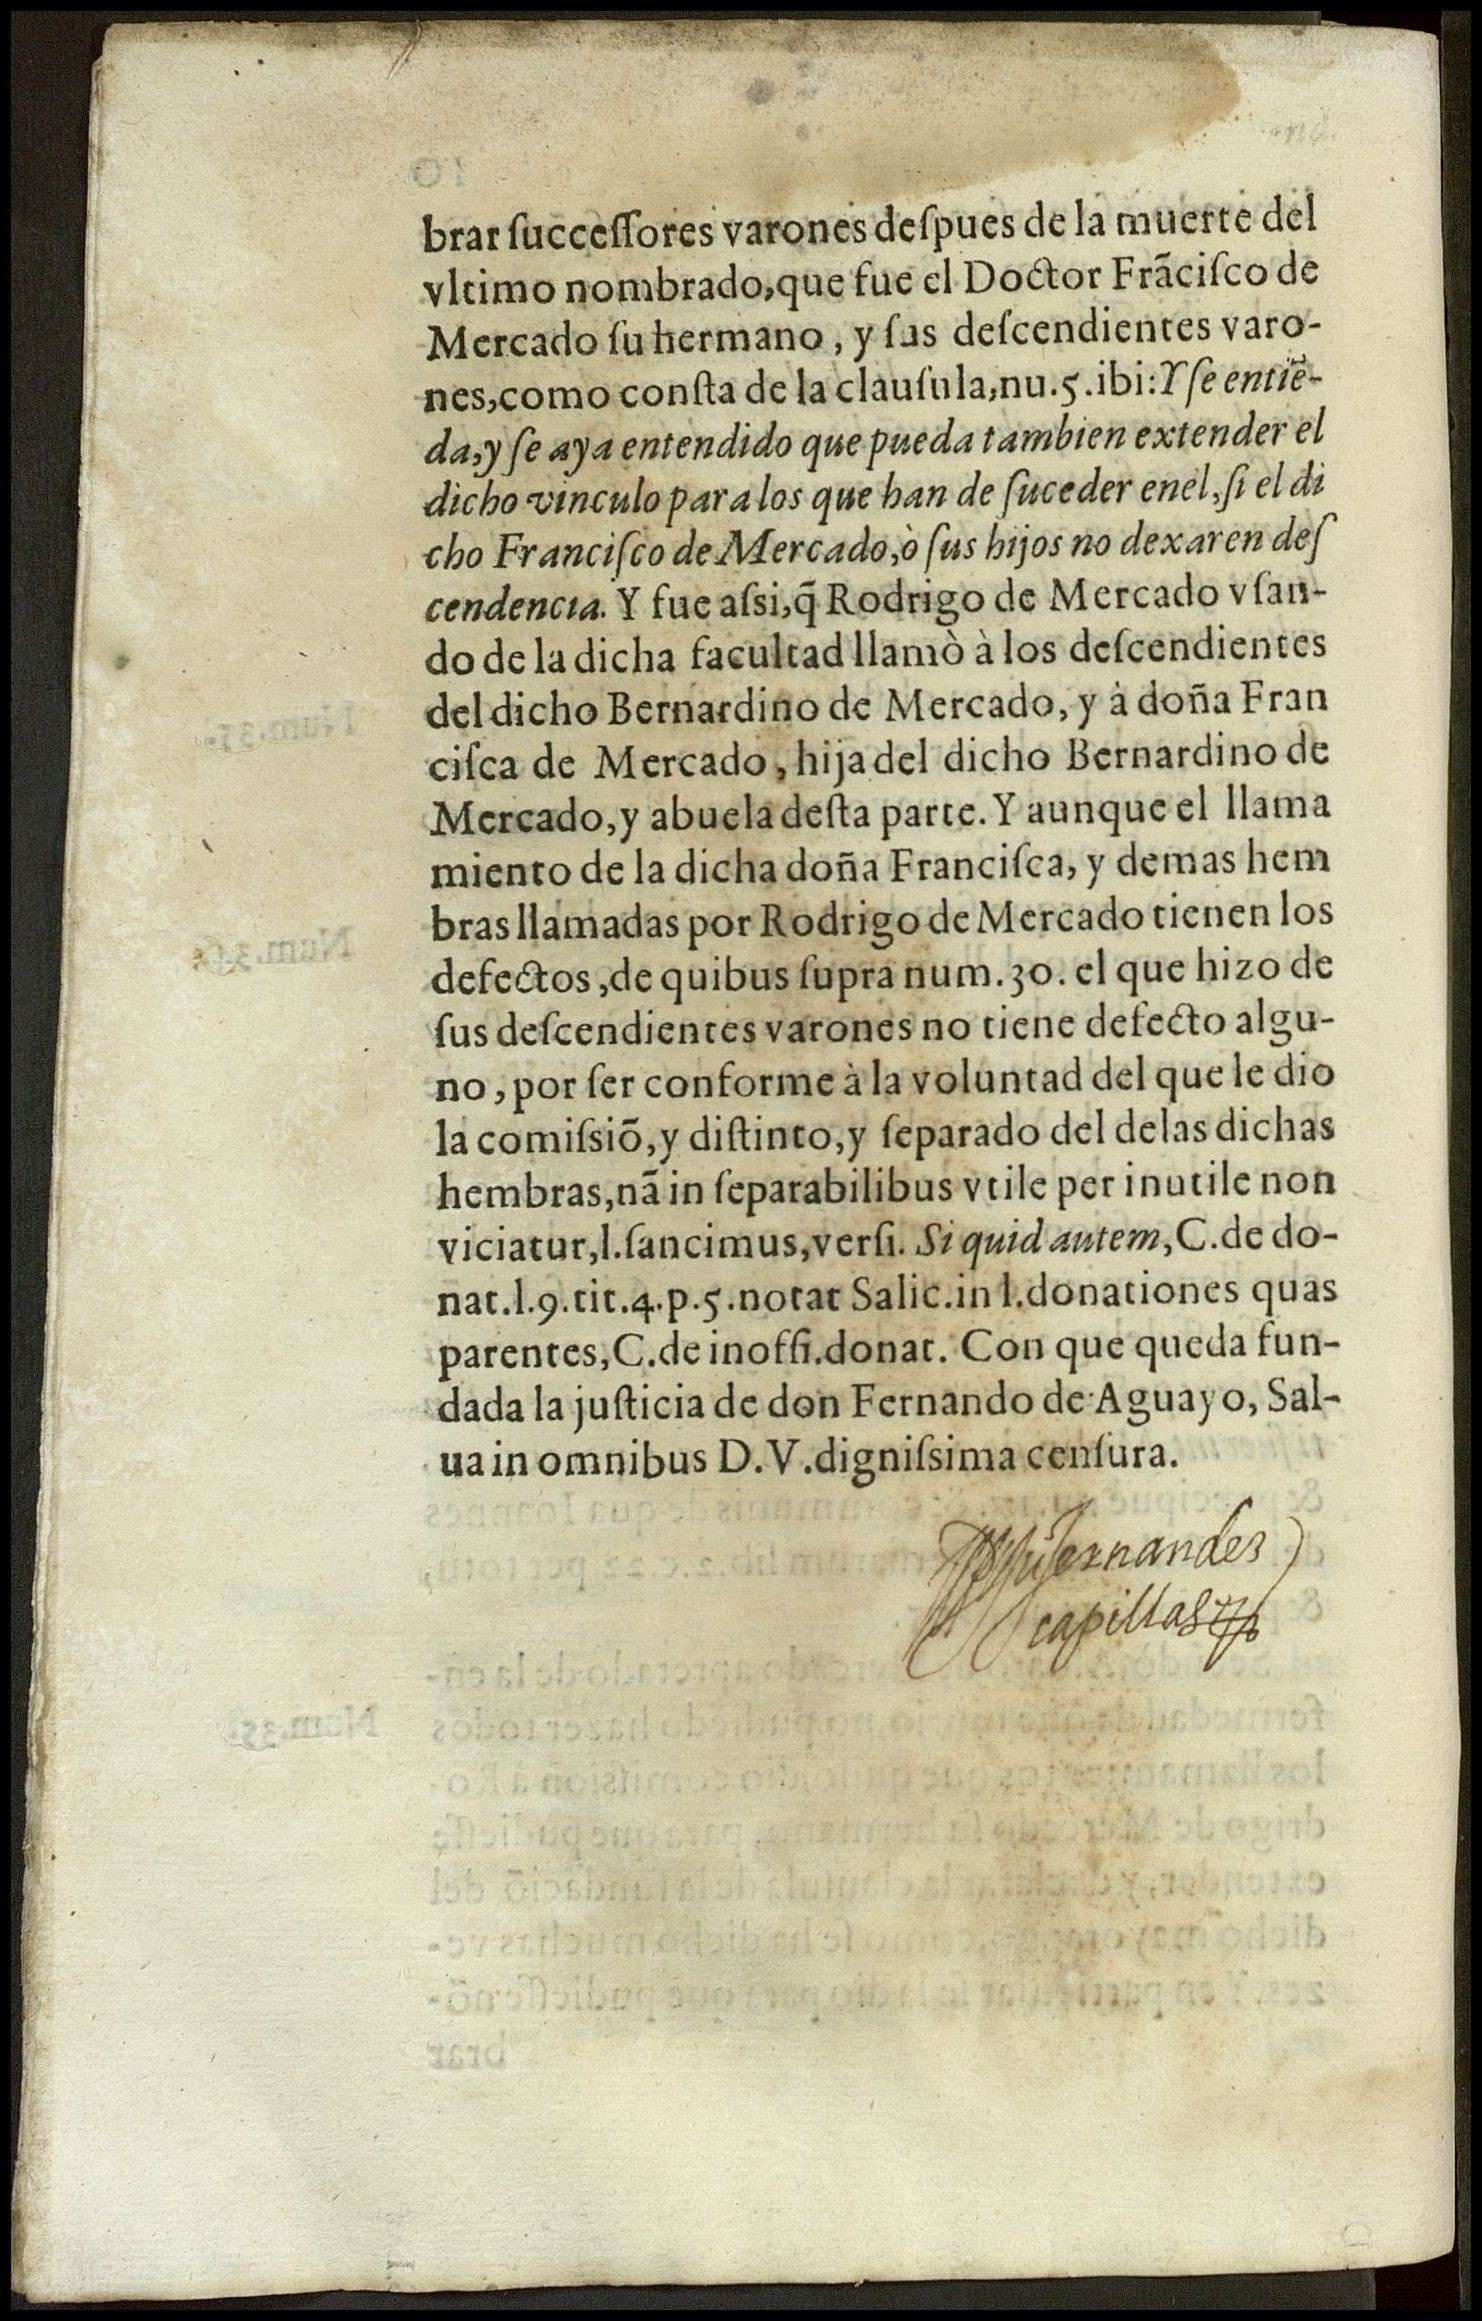 brar ſucceſſores varones deſpues de la muerte del
vltimo nombrado, que fue el Doctor Frãciſco de
Mercado ſu hermano, y ſus deſcendientes varo-
nes, como conſta de la clauſula, nu. 5. ibi: Y ſe entiẽ-
da, y ſe aya entendido que pueda tambien extender el
dicho vinculo para los que han de ſuceder en el, ſi el di
cho Franciſco de Mercado, ò ſus hijos no dexaren deſ
cendencia. Y fue aſsi, q̃ Rodrigo de Mercado vſan-
do de la dicha facultad llamò à los deſcendientes
del dicho Bernardino de Mercado, y à doña Fran
ciſca de Mercado, hija del dicho Bernardino de
Mercado, y abuela deſta parte. Y aunque el llama
miento de la dicha doña Franciſca, y demas hem
bras llamadas por Rodrigo de Mercado tienen los
defectos, de quibus ſupra num. 30. el que hizo de
ſus deſcendientes varones no tiene defecto algu-
no, por ſer conforme à la voluntad del que le dio
la comiſsiõ, y diſtinto, y ſeparado del delas dichas
hembras, nã in ſeparabilibus vtile per inutile non
viciatur, l. ſancimus, verſi. Si quid autem, C. de do-
nat. l. 9. tit. 4. p. 5. notat Salic. in l. donationes quas
parentes, C. de inoffi. donat. Con que queda fun-
dada la juſticia de don Fernando de Aguayo, Sal-
ua in omnibus D. V. digniſsima cenſura.
fernandez
capillas